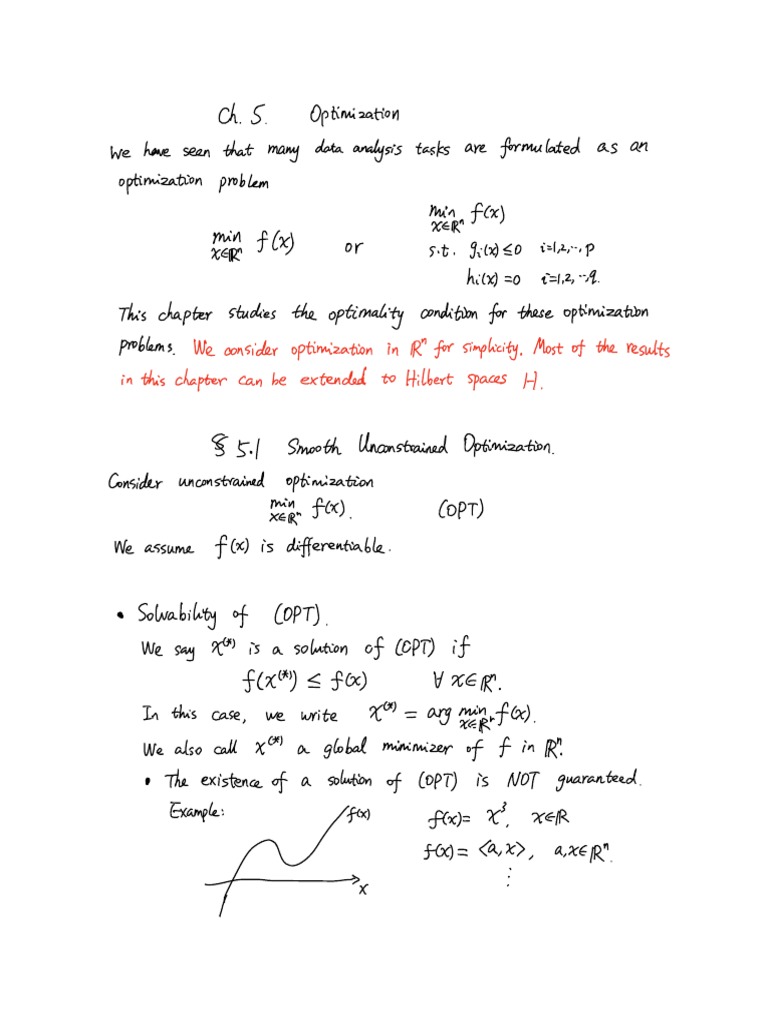 Ch. 5. Optimization
We have seen that many data analysis tasks are formulated as an
optimization problem
min f(x) or min f(x)
x∈ℝⁿ x∈ℝⁿ
s.t. gᵢ(x)≤0 i=1,2,⋯,p
hᵢ(x)=0 i=1,2,⋯q.
This chapter studies the optimality condition for these optimization
problems. We consider optimization in ℝⁿ for simplicity. Most of the results
in this chapter can be extended to Hilbert spaces H.
§ 5.1 Smooth Unconstrained Optimization.
Consider unconstrained optimization
min f(x). (OPT)
x∈ℝⁿ
We assume f(x) is differentiable.
• Solvability of (OPT).
We say x⁽*⁾ is a solution of (OPT) if
f(x⁽*⁾) ≤ f(x) ∀ x∈ℝⁿ.
In this case, we write x⁽*⁾ = arg min f(x).
x∈ℝⁿ
We also call x⁽*⁾ a global minimizer of f in ℝⁿ.
• The existence of a solution of (OPT) is NOT guaranteed.
Example: f(x) f(x)= x³, x∈ℝ
f(x)= ⟨a,x⟩, a,x∈ℝⁿ.
x ⋮